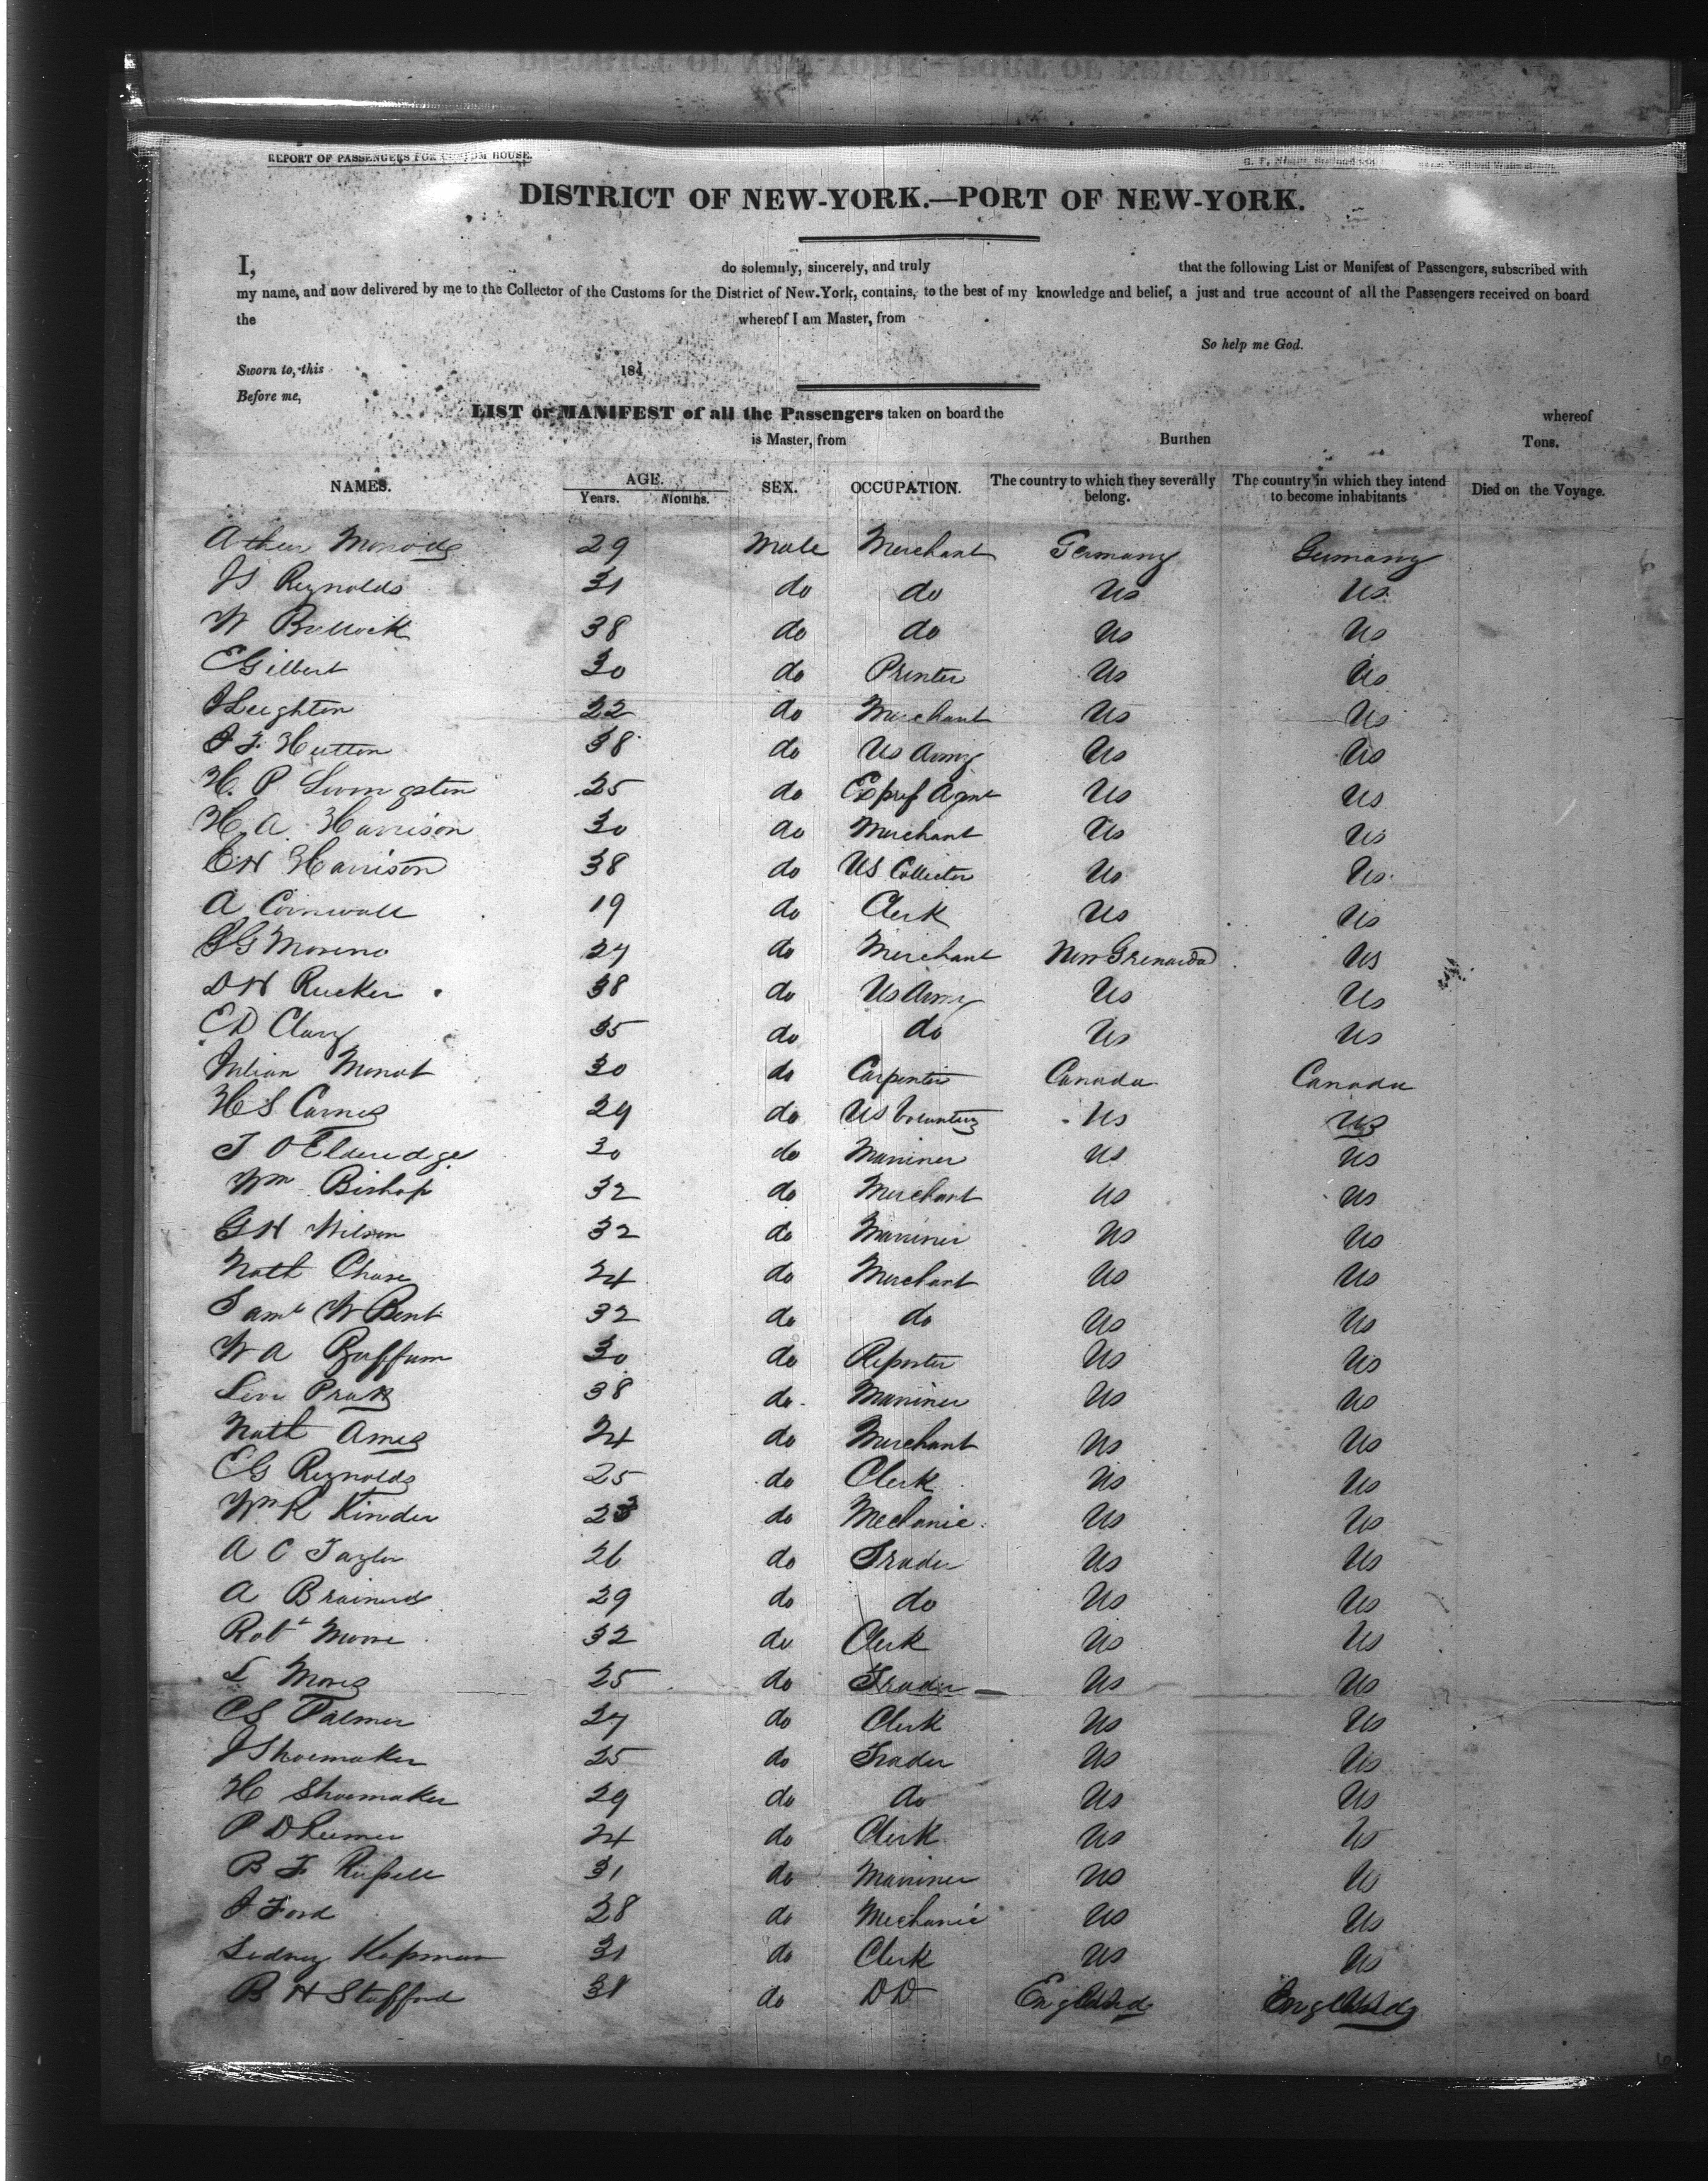 REPORT OF PASSENGERS FOR CUSTOM HOUSE.
DISTRICT OF NEW-YORK.—PORT OF NEW-YORK.
I, do solemnly, sincerely, and truly that the following List or Manifest of Passengers, subscribed with
my name, and now delivered by me to the Collector of the Customs for the District of New-York, contains, to the best of my knowledge and belief, a just and true account of all the Passengers received on board
the whereof I am Master, from
So help me God.
Sworn to, this 184
Before me,
LIST or MANIFEST of all the Passengers taken on board the whereof
is Master, from Burthen Tons.
NAMES. AGE. Years. Months. SEX. OCCUPATION. The country to which they severally belong. The country in which they intend to become inhabitants Died on the Voyage.
29 Male Merchant Germany Germany
JS Reynolds 31 do do Us Us
W Bullock 38 do do Us Us
E Gilbert 30 do Printer Us Us
J Leighton 22 do Merchant Us Us
J F Hutton 38 do Us Army Us Us
H. P Livingston 25 do Express Agnt Us Us
H. A Harrison 30 do Merchant Us Us
CH Harrison 38 do US Collector Us Us
A Cornwall 19 do Clerk Us Us
G Moreno 27 do Merchant New Grenada Us
DH Rucker 38 do Us Army Us Us
ED Clary 35 do do Us Us
30 do Carpenter Canada Canada
HS Carnes 29 do US Volunteer Us Us
J O Elderedge 30 do Mariner Us Us
Wm Bishop 32 do Merchant Us Us
GH Wilson 32 do Mariner Us Us
Nath Chase 24 do Merchant Us Us
Saml W Bent 32 do do Us Us
W A Buffum 30 do Reporter Us Us
Levi Pratt 38 do Mariner Us Us
Nath Ames 24 do Merchant Us Us
EG Reynolds 25 do Clerk Us Us
Wm R Kinder 23 do Mechanic Us Us
A C Taylor 26 do Trader Us Us
A Brainerd 29 do do Us Us
Robt Moore 32 do Clerk Us Us
L 25 do Trader Us Us
CS Palmer 27 do Clerk Us Us
J Shoemaker 25 do Trader Us Us
H Shoemaker 29 do do Us Us
P D 24 do Clerk Us Us
B F Russell 31 do Mariner Us Us
J Ford 28 do Mechanic Us Us
Sidney 31 do Clerk Us Us
B H Stafford 38 do DD England England